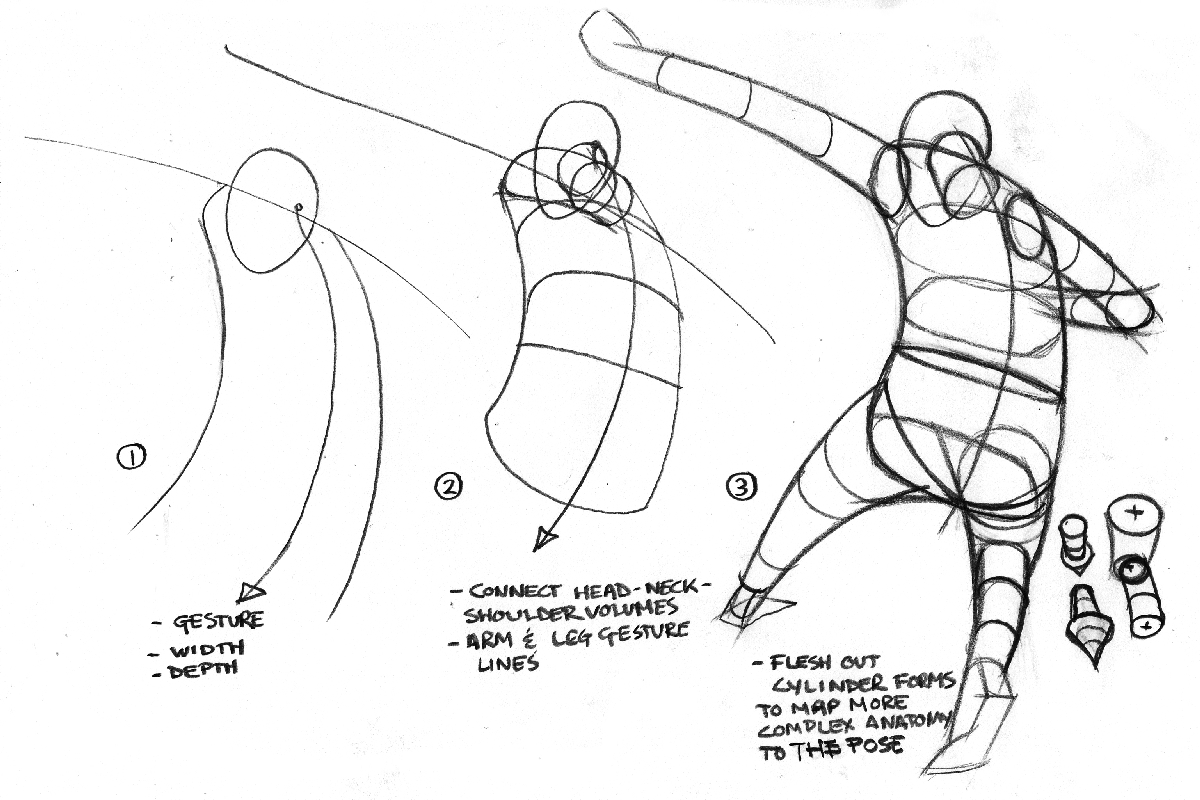 ①
- GESTURE
- WIDTH
- DEPTH
②
- CONNECT HEAD-NECK-
SHOULDER VOLUMES
- ARM & LEG GESTURE
LINES
③
- FLESH OUT
CYLINDER FORMS
TO MAP MORE
COMPLEX ANATOMY
TO THE POSE